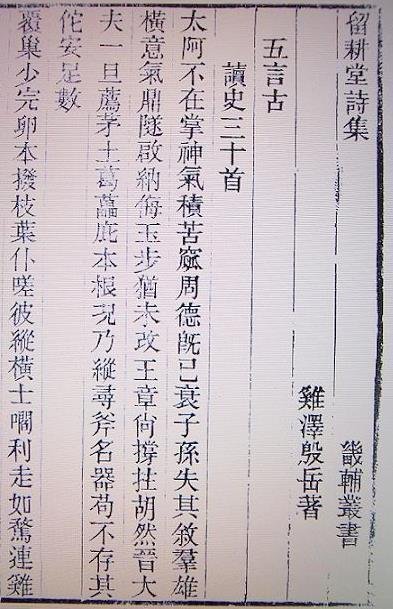 留耕堂詩集
畿輔叢書
雞澤殷岳著
五言古
讀史三十首
太阿不在掌神氣積苦窳周德旣已衰子孫失其敘羣雄
橫意氣鼎隧啟納侮玉步猶未改王章尙撐拄胡然晉大
夫一旦薦茅土葛藟庇本根況乃縱尋斧名器苟不存其
佗安足數
覆巢少完卵本撥枝葉仆嗟彼縱橫士啁利走如騖連雞